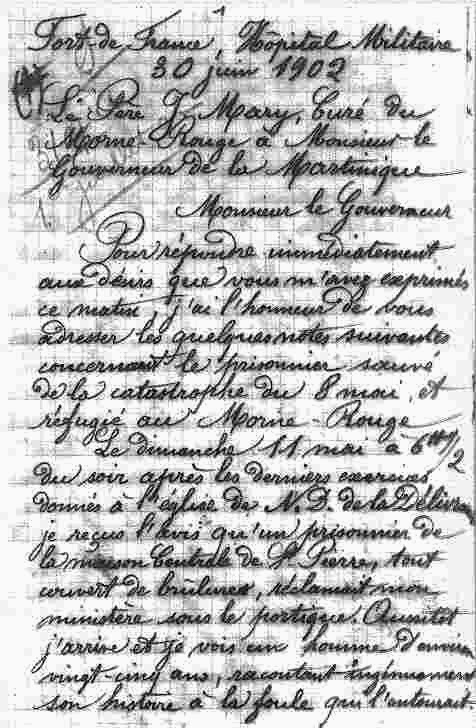 1
Fort-de France, Hôpital Militaire
30 juin 1902
Le Père J. Mary, Curé du
Morne-Rouge à Monsieur le
Gouverneur de la Martinique
Monsieur le Gouverneur
Pour répondre immédiatement
aux désirs que vous m'avez exprimés
ce matin, j'ai l'honneur de vous
adresser les quelques notes suivantes
concernant le prisonnier sauvé
de la catastrophe du 8 mai, et
réfugié au Morne-Rouge
Le dimanche 11 mai à 6 1/2
du soir après les derniers exercices
donnés à l'église de N. D. de la Délivran
je reçus l'avis qu'un prisonnier de
la maison Centrale de St Pierre, tout
couvert de brûlures, réclamait mon
ministère sous le portique. Aussitôt
j'arrive et je vois un homme d'environ
vingt-cinq ans, racontant ingénument
son histoire à la foule qui l'entourait